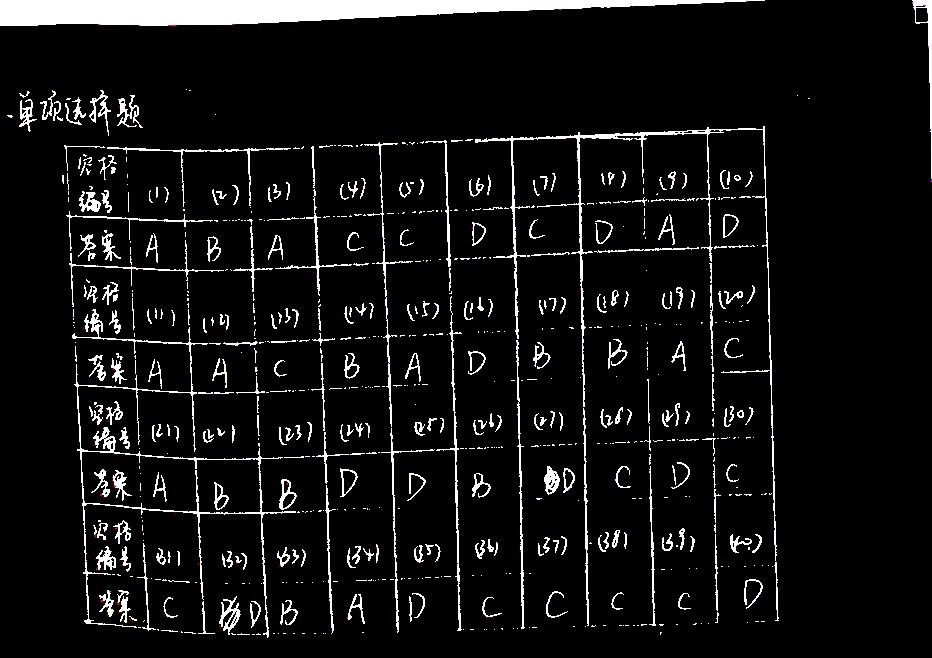 单项选择题
空格编号 (1) (2) (3) (4) (5) (6) (7) (8) (9) (10)
答案 A B A C C D C D A D
空格编号 (11) (12) (13) (14) (15) (16) (17) (18) (19) (20)
答案 A A C B A D B B A C
空格编号 (21) (22) (23) (24) (25) (26) (27) (28) (29) (30)
答案 A B B D D B D C D C
空格编号 (31) (32) (33) (34) (35) (36) (37) (38) (39) (40)
答案 C D B A D C C C C D